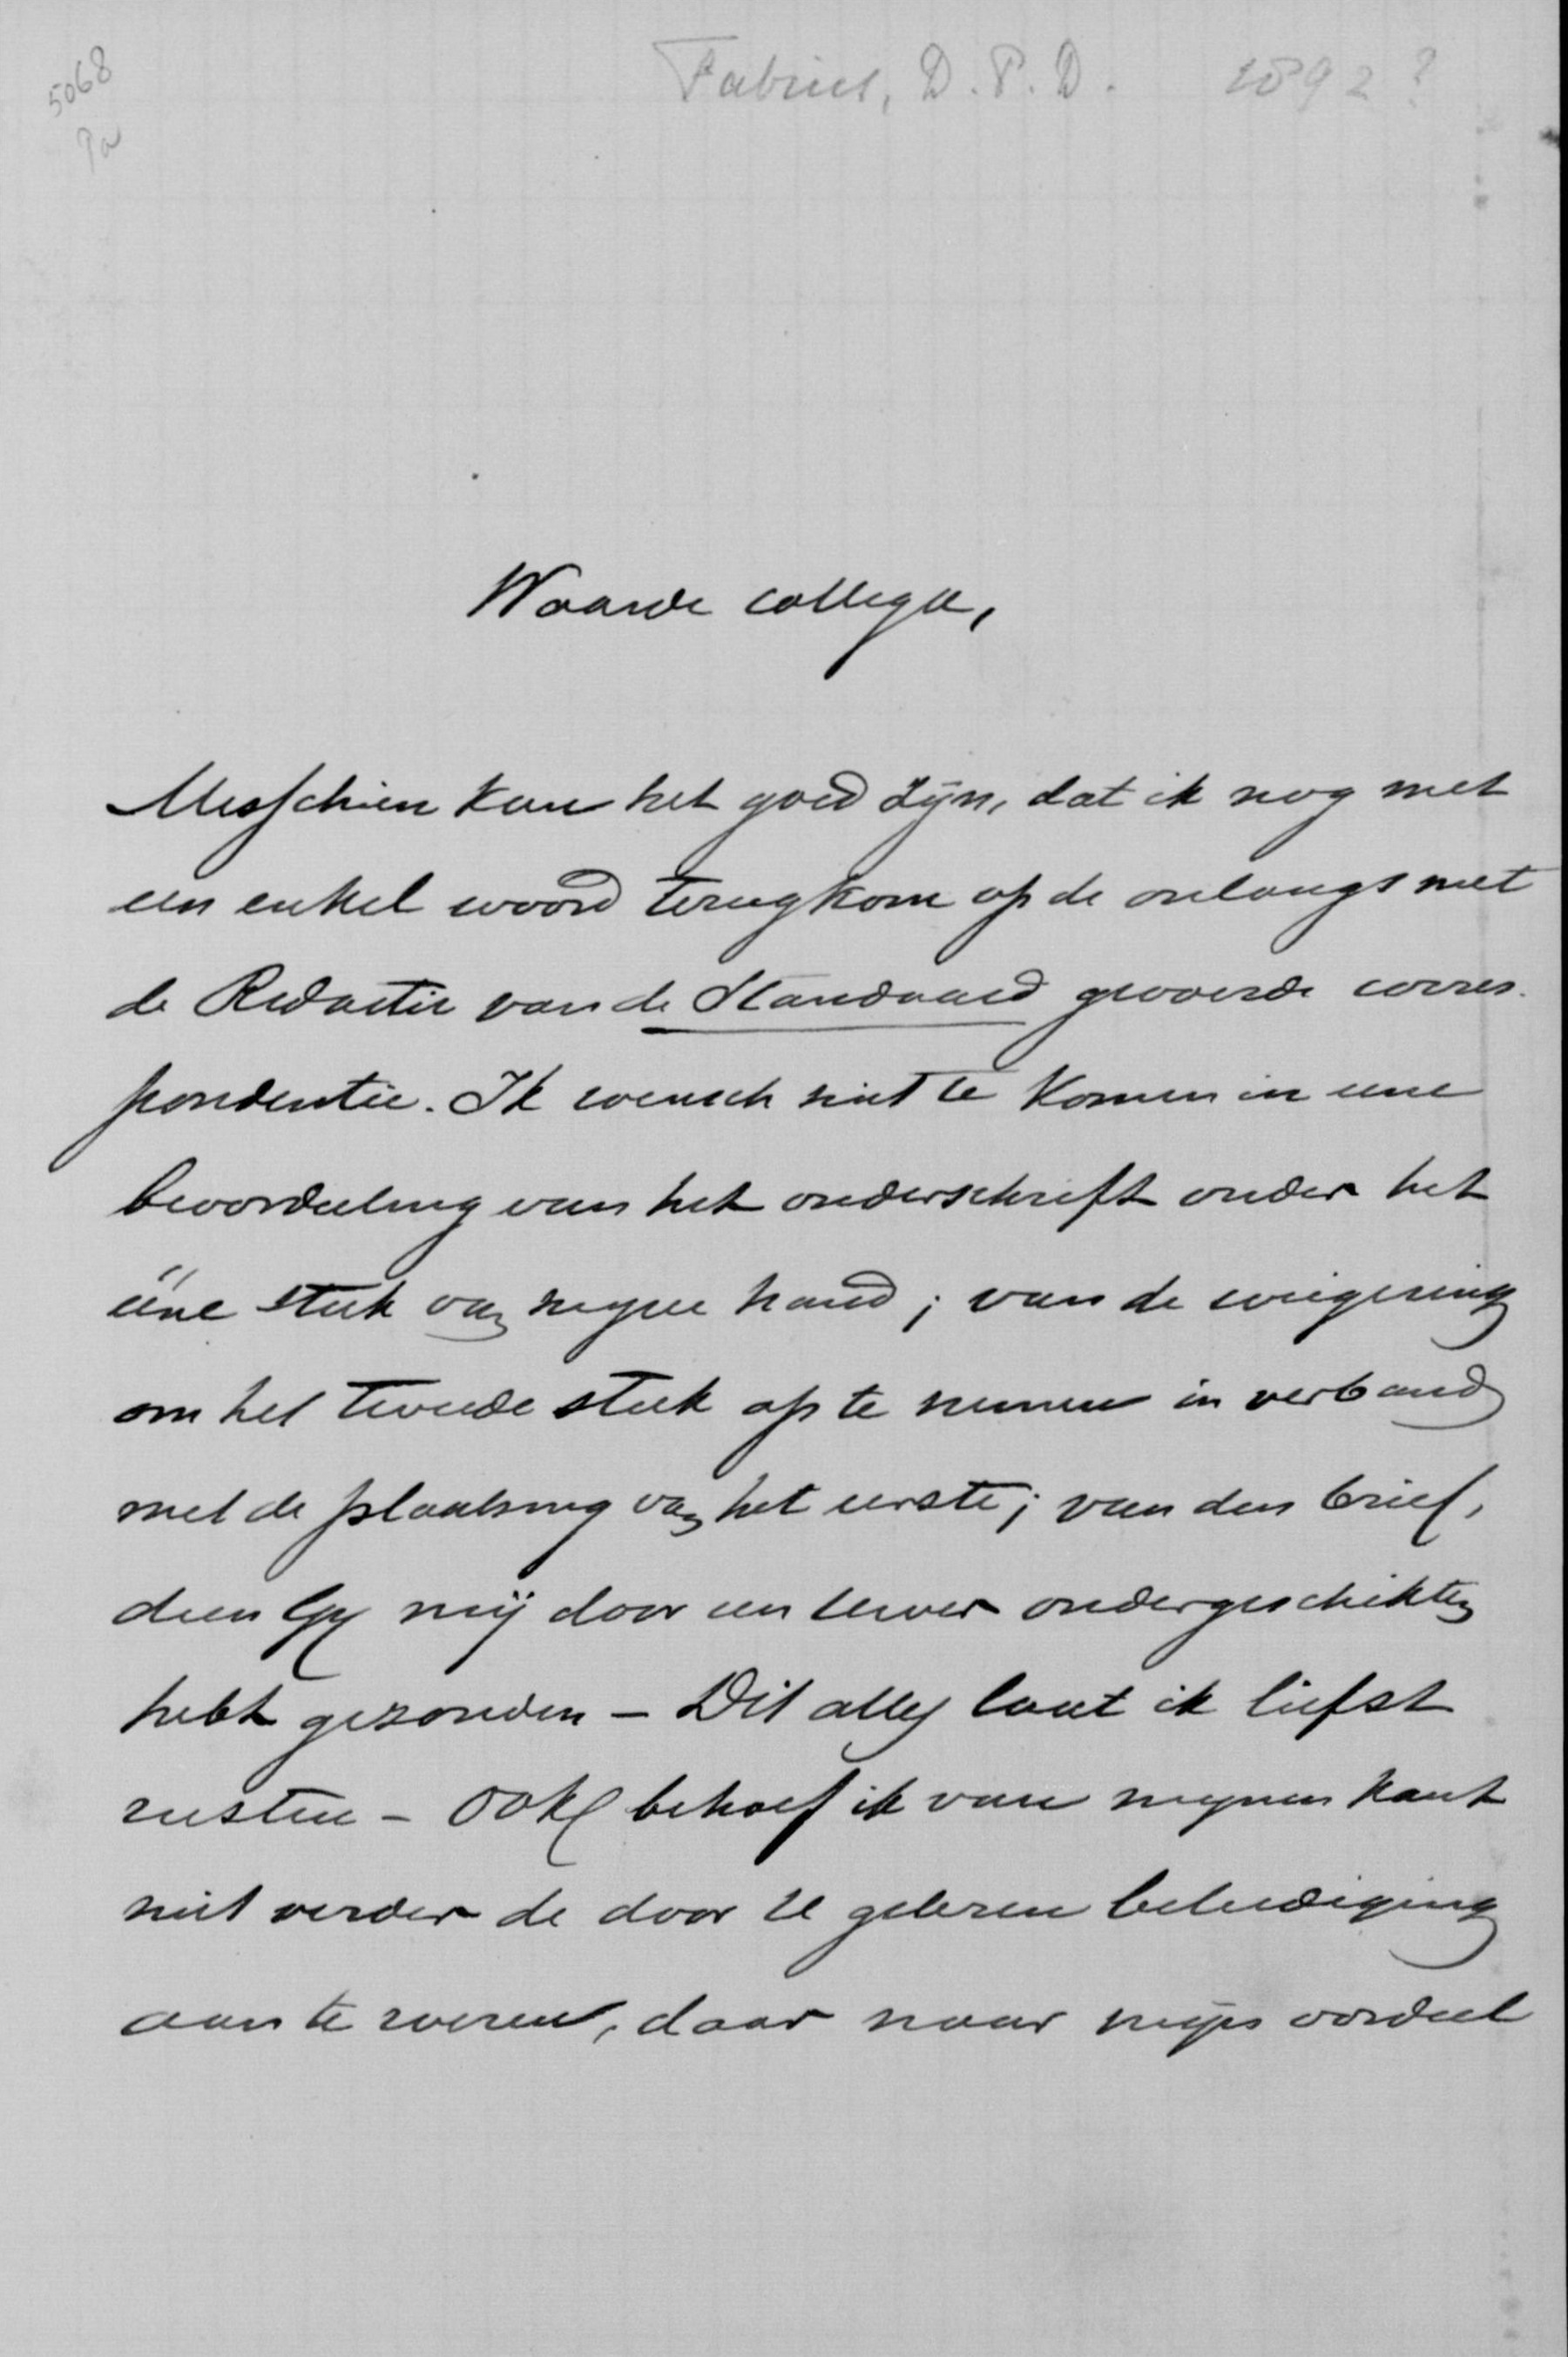 5068
Pa
Fabius, D. P. D. 1892?
Waarde collega,
Misschien kan het goed zijn, dat ik nog met
een enkel woord terugkom op de onlangs met
de Redactie van de Standaard gevoerde corres-
pondentie. Ik wensch niet te komen in eene
beoordeeling van het onderschrift onder het
ééne stuk van mijne hand; van de weigering
om het tweede stuk op te nemen in verband
met de plaatsing van het eerste; van den brief,
dien Gij mij door een Uwer ondergeschikten
hebt gezonden – Dit alles laat ik liefst
rusten – Ook behoef ik van mijnen kant
niet verder de door U gelezen beleediging
aan te roeren, daar naar mijn oordeel